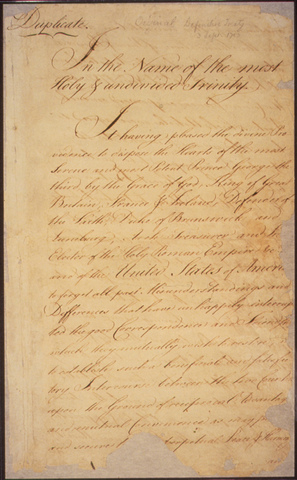 Duplicate.
Original Definitive Treaty
3 Sept. 1783
In the Name of the most
Holy & undivided Trinity.
It having pleased the divine Pro
vidence to dispose the Hearts of the most
Serene and most Potent Prince George the
third, by the Grace of God, King of Great
Britain, France & Ireland, Defender of
the Faith, Duke of Brunswick and
Lunebourg, Arch Treasurer and
Elector of the Holy Roman Empire &c
and of the United States of America
to forget all past Misunderstandings and
Differences that have unhappily interrup
ted the good Correspondence and Friendship
which they mutually wish to restore;
to establish such a beneficial and satisfac
tory Intercourse between the two Countries
upon the Ground of reciprocal Advantages
and mutual Convenience as may
and secure perpetual Peace & Harmony